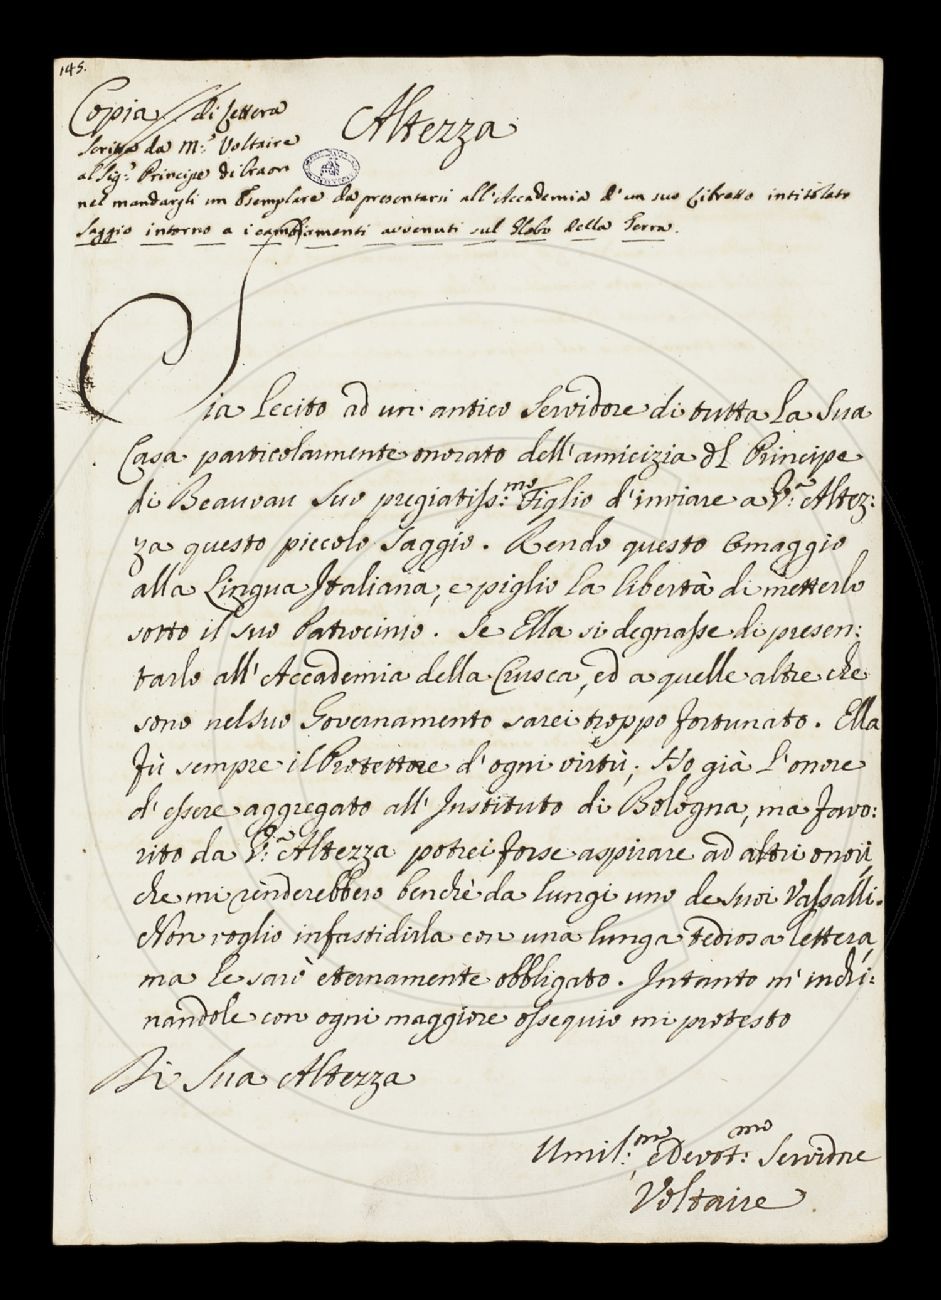 145.
Copia di Lettera
scritta da M.r Voltaire
al Sig.r Principe di Craon
nel mandargli un Esemplare da presentarsi all'Accademia d'un suo Libretto intitolato
Saggio intorno a i cambiamenti avvenuti sul Globo della Terra.
Altezza
Sia lecito ad un antico Servidore di tutta la Sua
Casa particolarmente onorato dell'amicizia dl Principe
di Beauvau Suo pregiatiss:mo Figlio d'inviare a V.ra Altez:
za questo piccolo Saggio. Rendo questo Omaggio
alla Lingua Italiana, e piglio la libertà di metterlo
sotto il Suo Patrocinio. Se Ella si degnasse di presen:
tarlo all'Accademia della Crusca, ed a quelle altre che
sono nel Suo Governamento sarei troppo fortunato. Ella
fù sempre il Protettore d'ogni virtù; Ho già l'onore
d'essere aggregato all'Instituto di Bologna, ma favo:
rito da V.ra Altezza potrei forse aspirare ad altri onori,
che mi renderebbero benchè da lungi uno de suoi Vassalli.
Non voglio infastidirla con una lunga tediosa lettera,
ma le sarò eternamente obbligato. Intanto m'inchi:
nandole con ogni maggiore ossequio mi protesto
Di Sua Altezza
Umil:mo e Devot:mo Servidore
Voltaire